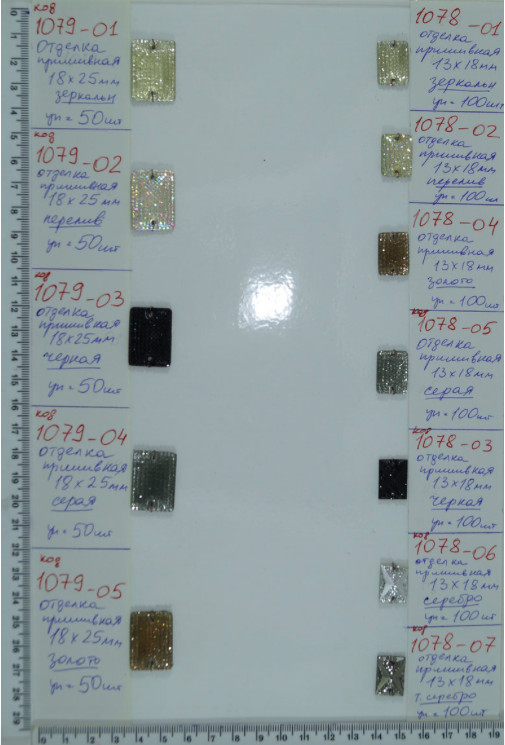 код
1079-01
отделка
пришивная
18х25мм
зеркальн
уп = 50шт
код
1079-02
отделка
пришивная
18х25мм
перелив
уп = 50шт
код
1079-03
отделка
пришивная
18х25мм
черная
уп = 50шт
код
1079-04
отделка
пришивная
18х25мм
серая
уп = 50шт
код
1079-05
отделка
пришивная
18х25мм
золото
уп = 50шт
1078-01
отделка
пришивная
13х18мм
зеркальн
уп = 100шт
1078-02
отделка
пришивная
13х18мм
перелив
уп = 100шт
1078-04
отделка
пришивная
13х18мм
золото
уп = 100шт
код
1078-05
отделка
пришивная
13х18мм
серая
уп = 100шт
код
1078-03
отделка
пришивная
13х18мм
черная
уп = 100шт
код
1078-06
отделка
пришивная
13х18мм
серебро
уп = 100шт
код
1078-07
отделка
пришивная
13х18мм
т. серебро
уп = 100шт
0 1 2 3 4 5 6 7 8 9 10 11 12 13 14 15 16 17 18 19